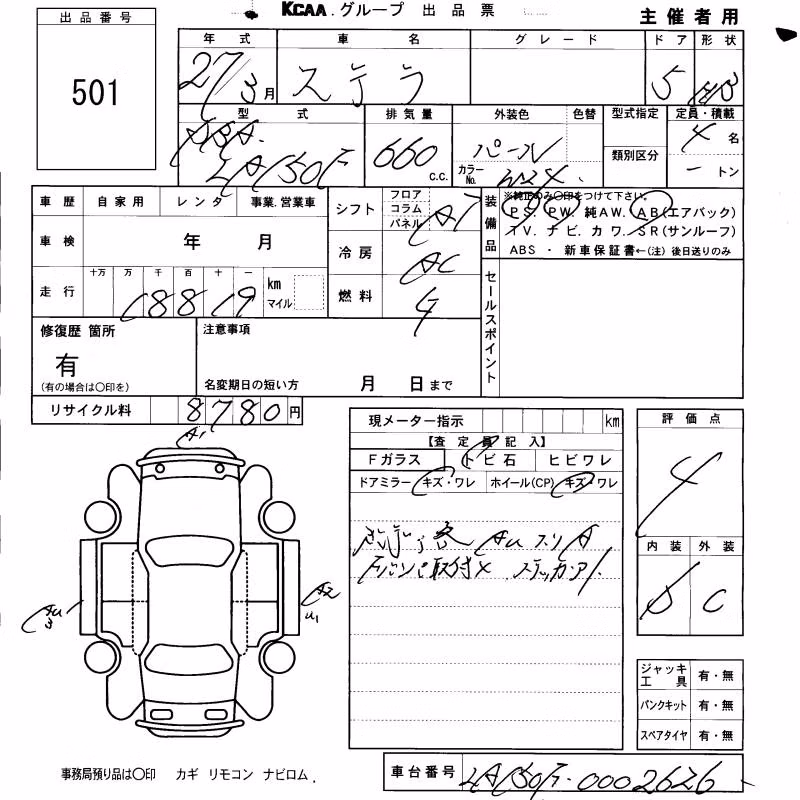 KCAA.グループ 出品票
主催者用
出品番号
501
年式 車名 グレード ドア 形状
27/3月 ステラ 5
型式 排気量 外装色 色替 型式指定 定員・積載
DBA 660 c.c. パール カラーNo. W24 類別区分 4名
LA150F ートン
車歴 自家用 レンタ 事業.営業車
車検 年 月
走行 十万 万 千 百 十 一 km マイル
18819
シフト フロア コラム パネル AT
冷房 AC
燃料 G
装備品 ※純正のみ〇印をつけて下さい。
PS. PW. 純AW. AB(エアバック)
TV. ナビ. カワ. SR(サンルーフ)
ABS ・ 新車保証書←(注) 後日送りのみ
セールスポイント
修復歴 箇所
有
(有の場合は〇印を)
注意事項
名変期日の短い方 月 日まで
リサイクル料 8780円
現メーター指示 km
【査定員記入】
Fガラス トビ石 ヒビワレ
ドアミラー キズ・ワレ ホイール(CP) キズ・ワレ
AU スリ A
取付× ステッカーアト
評価点
4
内装 外装
C
A1
AU3
A2
U1
ジャッキ工具 有・無
パンクキット 有・無
スペアタイヤ 有・無
事務局預り品は〇印 カギ リモコン ナビロム.
車台番号 LA150F-0002626